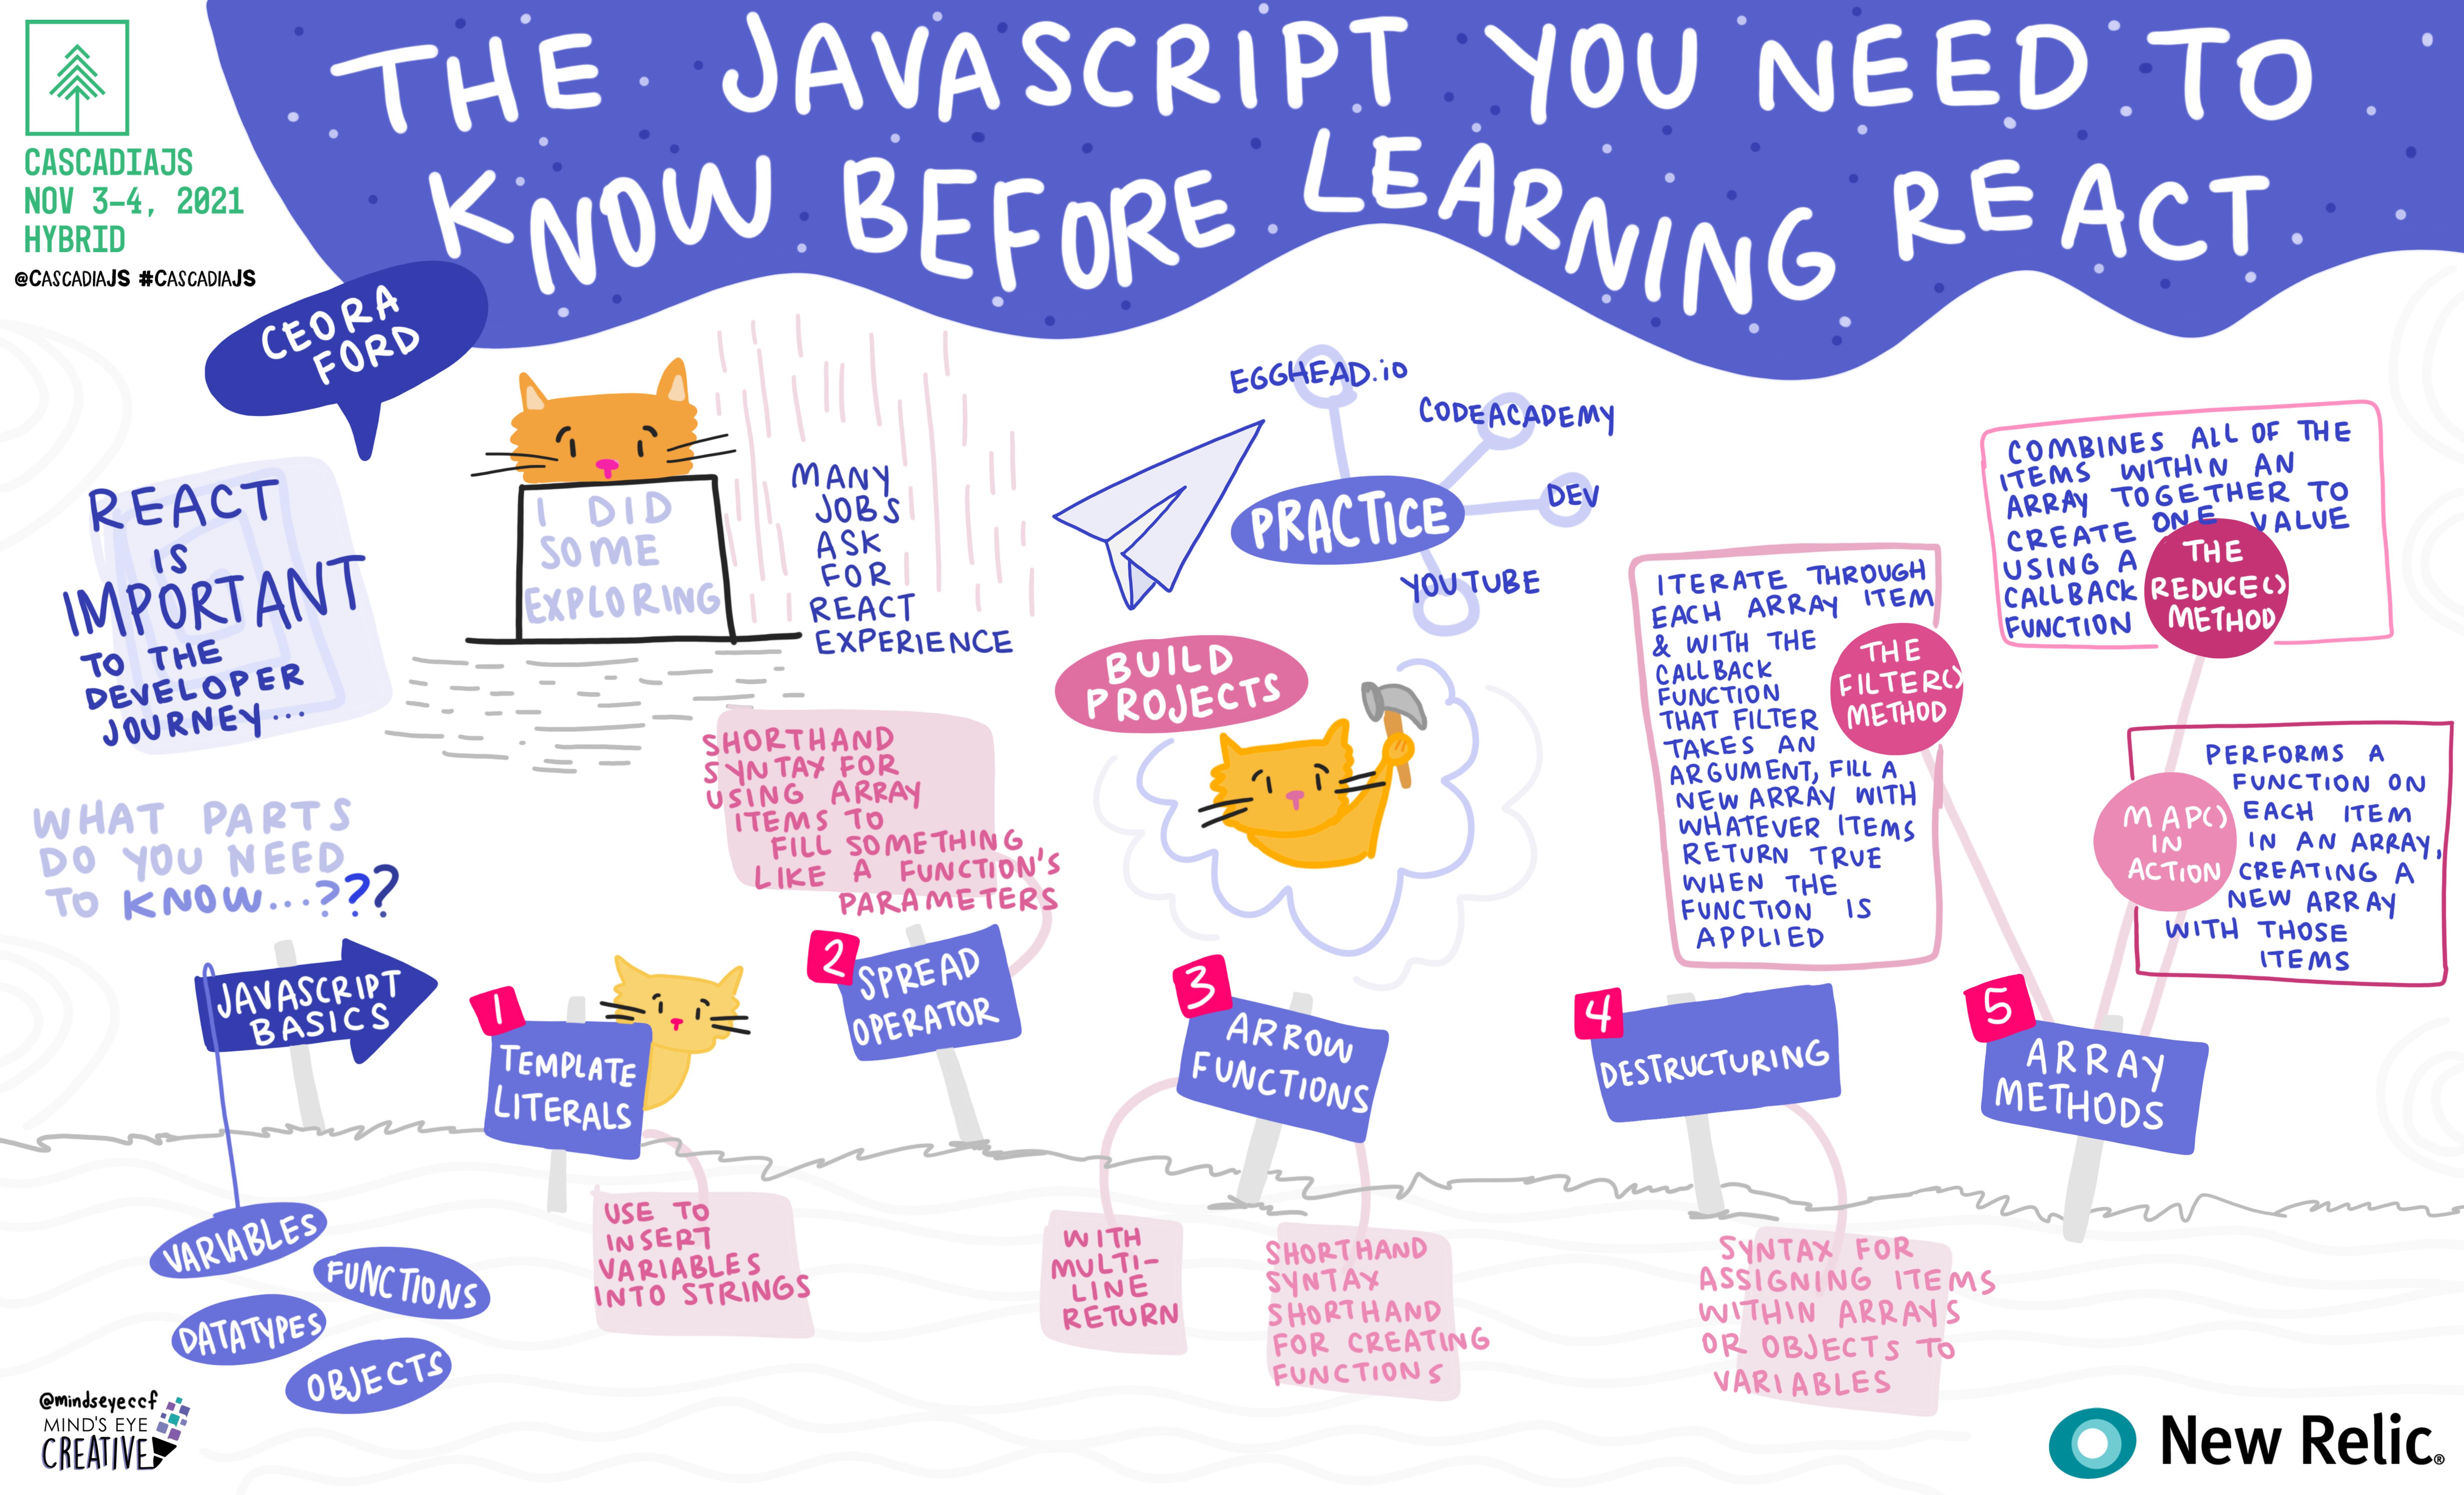 CASCADIAJS
NOV 3-4, 2021
HYBRID
@CASCADIAJS #CASCADIAJS
THE JAVASCRIPT YOU NEED TO
KNOW BEFORE LEARNING REACT
CEORA
FORD
REACT
IS
IMPORTANT
TO THE
DEVELOPER
JOURNEY...
I DID
SOME
EXPLORING
MANY
JOBS
ASK
FOR
REACT
EXPERIENCE
PRACTICE
EGGHEAD.io
CODEACADEMY
DEV
YOUTUBE
BUILD
PROJECTS
WHAT PARTS
DO YOU NEED
TO KNOW...???
JAVASCRIPT
BASICS
VARIABLES
FUNCTIONS
DATATYPES
OBJECTS
1
TEMPLATE
LITERALS
USE TO
INSERT
VARIABLES
INTO STRINGS
2
SPREAD
OPERATOR
SHORTHAND
SYNTAX FOR
USING ARRAY
ITEMS TO
FILL SOMETHING
LIKE A FUNCTION'S
PARAMETERS
3
ARROW
FUNCTIONS
WITH
MULTI-
LINE
RETURN
SHORTHAND
SYNTAX
SHORTHAND
FOR CREATING
FUNCTIONS
4
DESTRUCTURING
SYNTAX FOR
ASSIGNING ITEMS
WITHIN ARRAYS
OR OBJECTS TO
VARIABLES
5
ARRAY
METHODS
THE
FILTER()
METHOD
ITERATE THROUGH
EACH ARRAY ITEM
& WITH THE
CALLBACK
FUNCTION
THAT FILTER
TAKES AN
ARGUMENT, FILL A
NEW ARRAY WITH
WHATEVER ITEMS
RETURN TRUE
WHEN THE
FUNCTION IS
APPLIED
THE
REDUCE()
METHOD
COMBINES ALL OF THE
ITEMS WITHIN AN
ARRAY TOGETHER TO
CREATE ONE VALUE
USING A
CALLBACK
FUNCTION
MAP()
IN
ACTION
PERFORMS A
FUNCTION ON
EACH ITEM
IN AN ARRAY,
CREATING A
NEW ARRAY
WITH THOSE
ITEMS
@mindseyeccf
MIND'S EYE
CREATIVE
New Relic®